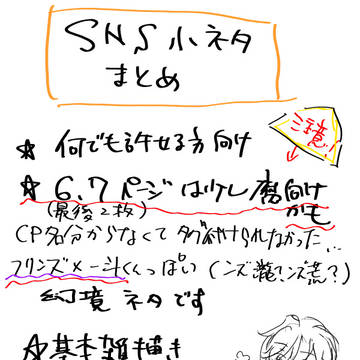 SNS小ネタ
まとめ
注意!
☆ 何でも許せる方向け
☆ 6,7ページはケモ魔向け
かも
(最後2枚)
CP名分からなくてタグ付けられなかった...
フリンズ×一斗くんっぽい(ンズ瀧?ンズ荒?)
幻境ネタです
☆基本雑描き